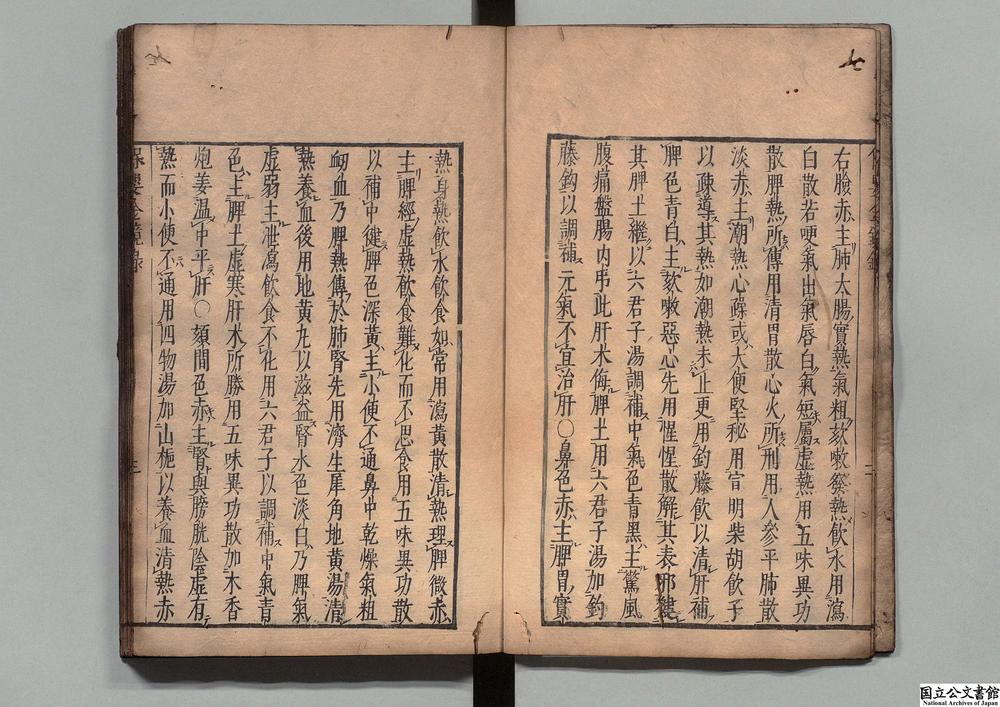 七
右臉赤主肺大腸實熱氣粗欬嗽發熱飲水用瀉
白散若哽氣出氣唇白氣短屬虛熱用五味異功
散脾熱所傳用清胃散心火所刑用人參平肺散
淡赤主潮熱心躁或大便堅秘用宣明柴胡飲子
以疎導其熱如潮熱未止更用鈎藤飲以清肝補
脾色青白主欬嗽惡心先用惺惺散解其表邪健
其脾土繼以六君子湯調補中氣色青黑主驚風
腹痛盤腸內吊此肝木侮脾土用六君子湯加鈎
藤鈎以調補元氣不宜治肝〇鼻色赤主脾胃實
七
熱身熱飲水飲食如常用瀉黃散清熱理脾微赤
主脾經虛熱飲食難化而不思食用五味異功散
以補中健脾色深黃主小便不通鼻中乾燥氣粗
衂血乃脾熱傳於肺腎先用濟生犀角地黃湯清
熱養血後用地黃丸以滋益腎水色淡白乃脾氣
虛弱主泄瀉飲食不化用六君子以調補中氣青
色主脾土虛寒肝木所勝用五味異功散加木香
炮姜溫中平肝〇頦間色赤主腎與膀胱陰虛有
熱而小便不通用四物湯加山梔以養血清熱赤
保嬰金鏡錄
三
国立公文書館
National Archives of Japan